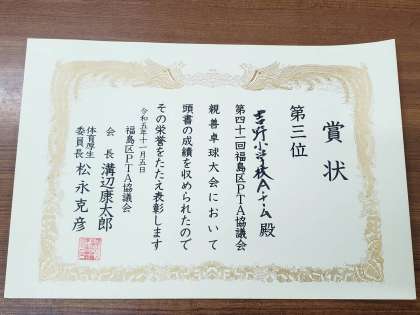 賞状
第三位
吉野小学校Aチーム 殿
第四十一回福島区PTA協議会
親善卓球大会において
頭書の成績を収められたので
その栄誉をたたえ表彰します
令和五年十一月五日
福島区PTA協議会
会長 溝辺康太郎
体育厚生
委員長 松永克彦